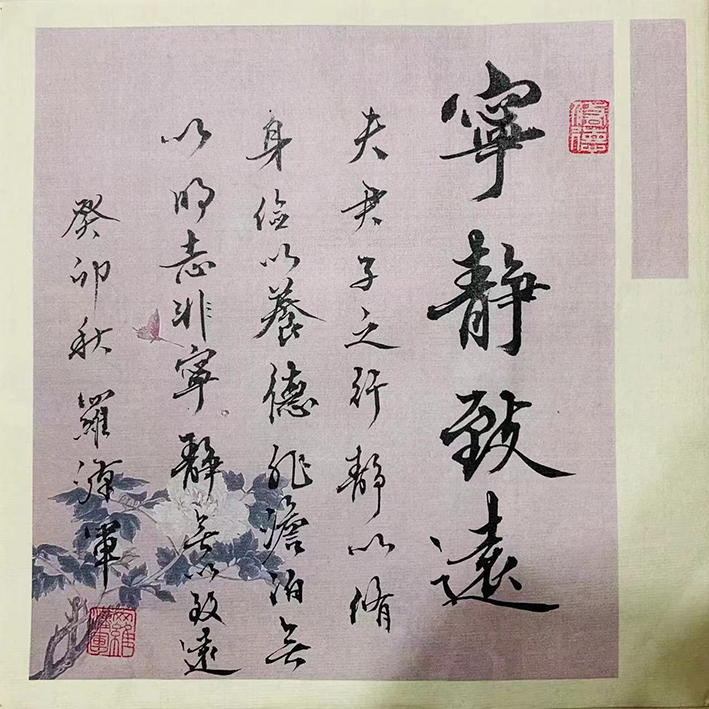 寧靜致遠
夫君子之行靜以脩
身儉以養德非澹泊無
以明志非寧靜無以致遠
癸卯秋羅海軍